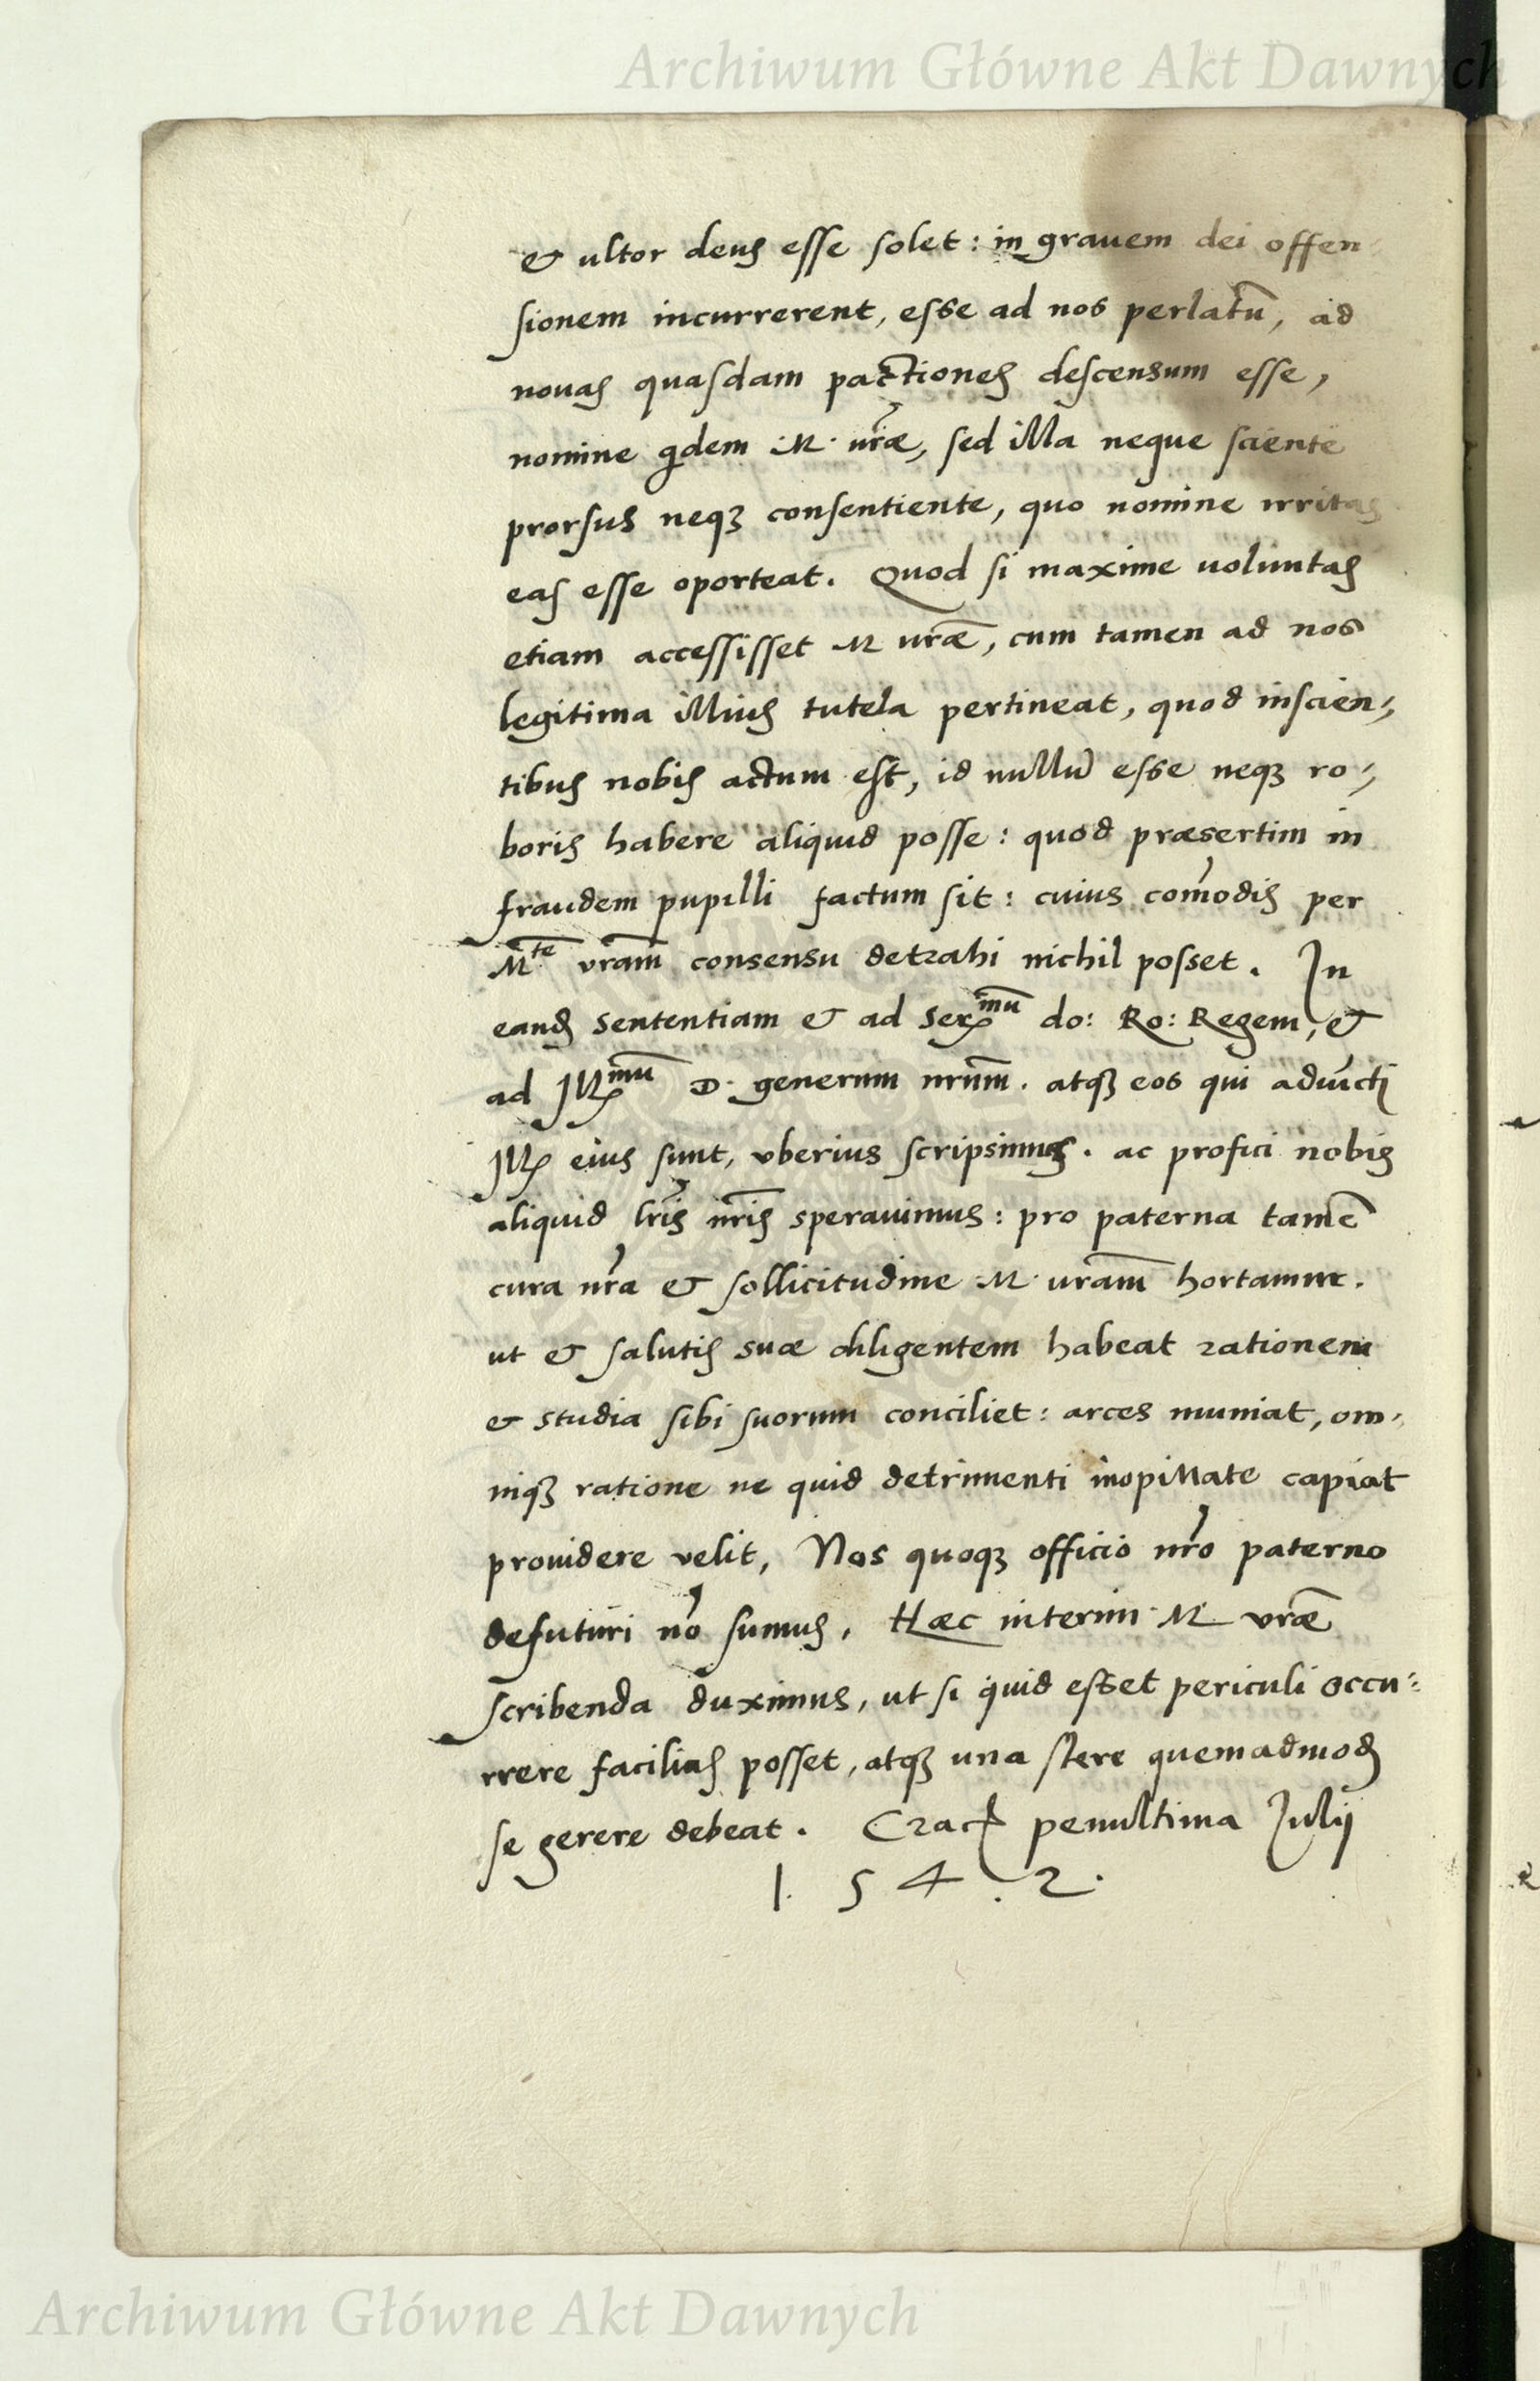 Archiwum Główne Akt Dawnych
& ultor deus esse solet: in grauem dei offen-
sionem incurrerent, esse ad nos perlatū, ad
nouas quasdam pactiones descensum esse,
nomine qdem M. vr̃æ, sed illa neque sciente
prorsus neqꝫ consentiente, quo nomine irritas
eas esse oporteat. Quod si maxime uoluntas
etiam accessisset M vræ̃, cum tamen ad nos
legitima illius tutela pertineat, quod inscien-
tibus nobis actum est, id nullū esse neqꝫ ro-
boris habere aliquid posse: quod præsertim in
fraudem pupilli factum sit: cuius com̃odis per
M.te vram̃ consensu detrahi nichil posset. In
eand sententiam & ad Ser.mū do: Ro: Regem, &
ad Ill.mū D. generum nrūm. atqꝫ eos qui adiūcti
Ill. eius sunt, vberius scripsimus. ac profici nobis
aliquid lr̃is nr̃is sperauimus: pro paterna tamē
cura nr̃a & sollicitudine M. uram̃ hortamur.
ut & salutis suæ diligentem habeat rationem
& studia sibi suorum conciliet: arces muniat, om-
niqꝫ ratione ne quid detrimenti inopinate capiat
prouidere velit, Nos quoqꝫ officio nr̃o paterno
defuturi nō sumus. Hæc interim M. vræ̃
scribenda duximus, ut si quid esset periculi occu-
rrere facilius posset, atqꝫ una scire quemadmod
se gerere debeat. Crac penultima Julij
1.5 4.2.
Archiwum Główne Akt Dawnych